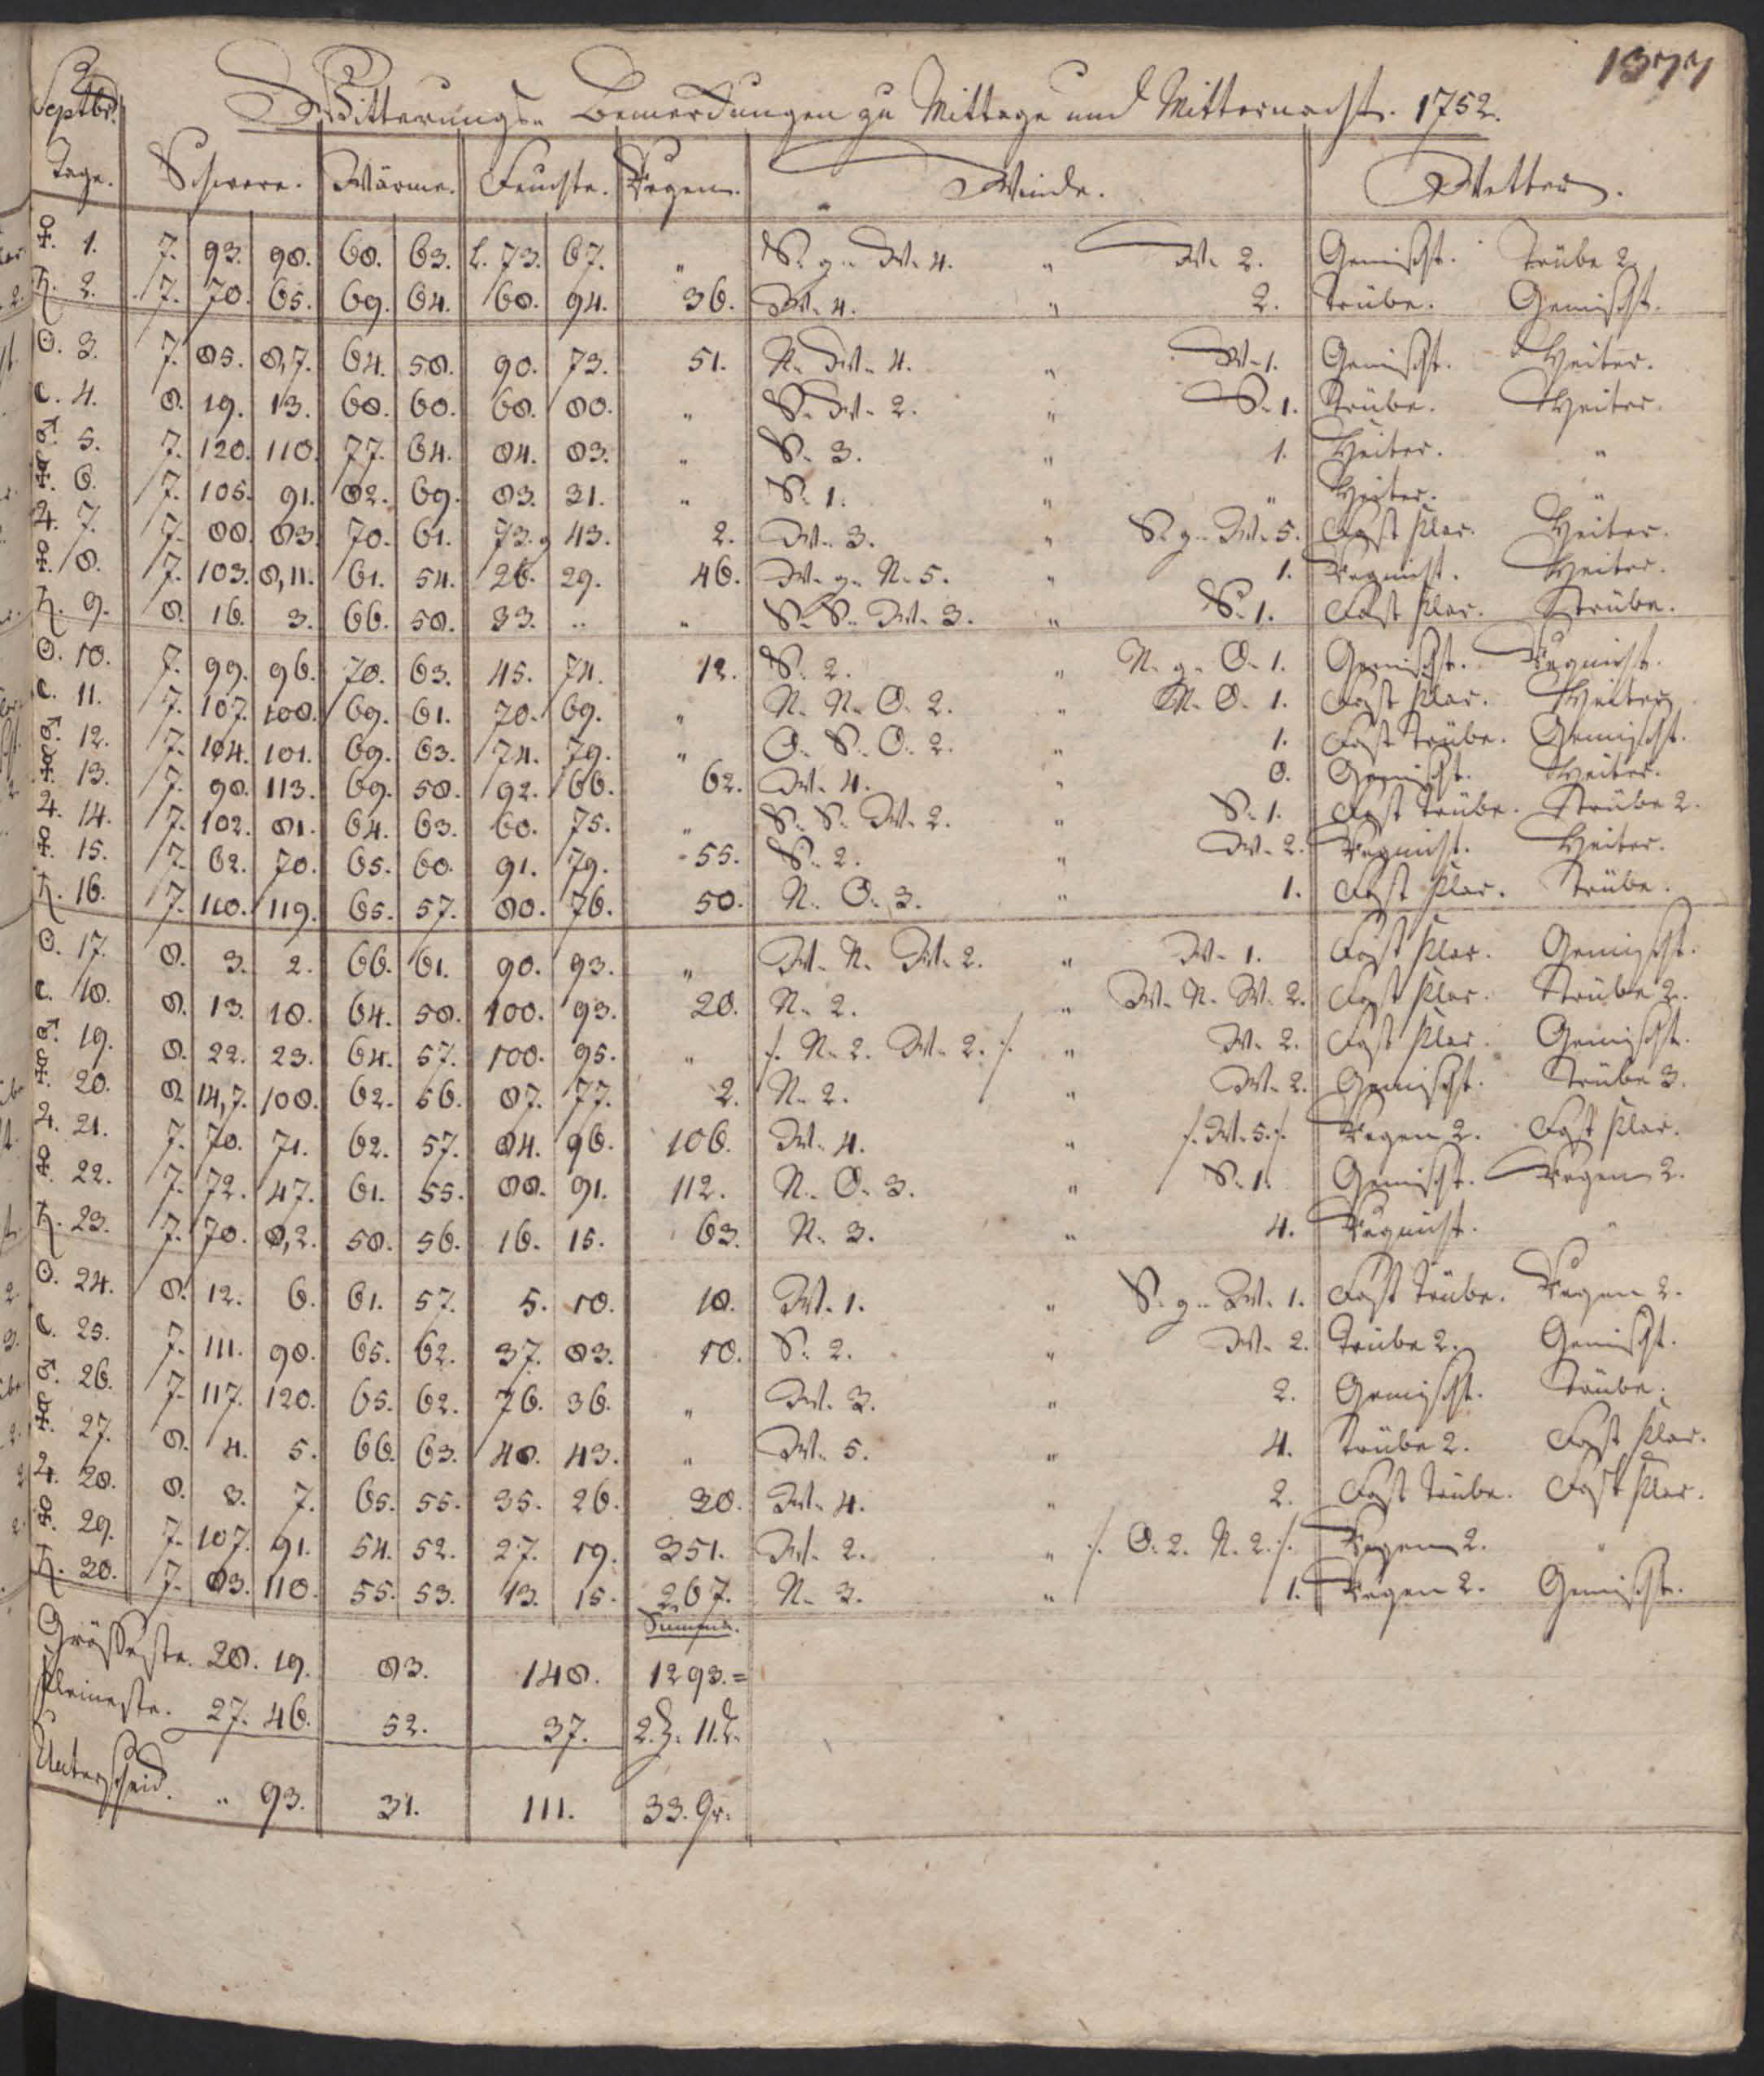 1377
Septbr. Witterungs- Bemerckungen zu Mittage und Mitternacht. 1752.
Tage. Schwere. Wärme. Feuchte. Regen. Winde. Wetter.
♀. 1. 7. 93. 98. 68. 63. L. 73. 67. „ S. g. W. 4. „ W. 2. Gemischt. Trübe 2.
♄. 2. 7. 70. 65. 69. 64. 68. 94. 36. W. 4. „ 2. Trübe. Gemischt.
☉. 3. 7. 85. 8,7. 64. 58. 90. 73. 51. N. W. 4. „ W. 1. Gemischt. Heiter.
☾. 4. 8. 19. 13. 68. 60. 68. 80. „ S. W. 2. „ S. 1. Trübe. Heiter.
♂. 5. 7. 120. 110. 77. 64. 84. 83. „ S. 3. „ 1. Heiter. „
☿. 6. 7. 105. 91. 82. 69. 83. 31. „ S. 1. „ „ Heiter. „
♃. 7. 7. 88. 83. 70. 61. 73. 43. 2. W. 3. „ S. g. W. 5. Fast klar. Heiter.
♀. 8. 7. 103. 8,11. 61. 54. 26. 29. 46. W. g. N. 5. „ 1. Regnicht. Heiter.
♄. 9. 8. 16. 3. 66. 58. 33. .. „ S. S. W. 3. „ S. 1. Fast klar. Trübe.
☉. 10. 7. 99. 96. 70. 63. 45. 74. 12. S. 2. „ N. g. O. 1. Gemischt. Regnicht.
☾. 11. 7. 107. 108. 69. 61. 70. 69. „ N. N. O. 2. „ N. O. 1. Fast klar. Heiter.
♂. 12. 7. 104. 101. 69. 63. 74. 79. „ O. S. O. 2. „ 1. Fast Trübe. Gemischt.
☿. 13. 7. 98. 113. 69. 58. 92. 66. 62. W. 4. „ 0. Gemischt. Heiter.
♃. 14. 7. 102. 81. 64. 63. 60. 75. „ S. S. W. 2. „ S. 1. Fast Trübe. Trübe 2.
♀. 15. 7. 62. 70. 65. 60. 91. 79. 55. S. 2. „ W. 2. Regnicht. Heiter.
♄. 16. 7. 110. 119. 65. 57. 80. 76. 50. N. O. 3. „ 1. Fast klar. Trübe.
☉. 17. 8. 3. 2. 66. 61. 90. 93. „ W. N. W. 2. „ W. 1. Fast klar. Gemischt.
☾. 18. 8. 13. 18. 64. 58. 100. 93. 20. N. 2. „ W. N. W. 2. Fast klar. Trübe 2.
♂. 19. 8. 22. 23. 64. 57. 100. 95. „ /. N. 2. W. 2. /. „ W. 2. Fast klar. Gemischt.
☿. 20. 8. 14,7. 108. 62. 56. 87. 77. 2. N. 2. „ W. 2. Gemischt. Trübe 3.
♃. 21. 7. 70. 71. 62. 57. 84. 96. 106. W. 4. „ /. W. 5. /. Regen 2. Fast klar.
♀. 22. 7. 72. 47. 61. 55. 88. 91. 112. N. O. 3. „ S. 1. Gemischt. Regen 2.
♄. 23. 7. 70. 8,2. 58. 56. 16. 15. 63. N. 3. „ 4. Regnicht. „
☉. 24. 8. 12. 6. 61. 57. 5. 10. 18. W. 1. „ S. g. W. 1. Fast Trübe. Regen 2.
☾. 25. 7. 111. 98. 65. 62. 37. 83. 10. S. 2. „ W. 2. Trübe 2. Gemischt.
♂. 26. 7. 117. 120. 65. 62. 76. 36. „ W. 3. „ 2. Gemischt. Trübe.
☿. 27. 8. 4. 5. 66. 63. 48. 43. „ W. 5. „ 4. Trübe 2. Fast klar.
♃. 28. 8. 3. 7. 65. 55. 35. 26. 30. W. 4. „ 2. Fast Trübe. Fast klar.
♀. 29. 7. 107. 91. 54. 52. 27. 19. 351. W. 2. „ /. O. 2. N. 2. /. Regen 2. „
♄. 30. 7. 83. 110. 55. 53. 13. 15. 267. N. 3. „ 1. Regen 2. Gemischt.
Summa.
Grösseste. 28. 19. 83. 148. 1293. =
Kleineste. 27. 46. 52. 37. 2. 11.
Unterscheid. „ 93. 31. 111. 33. Gr.